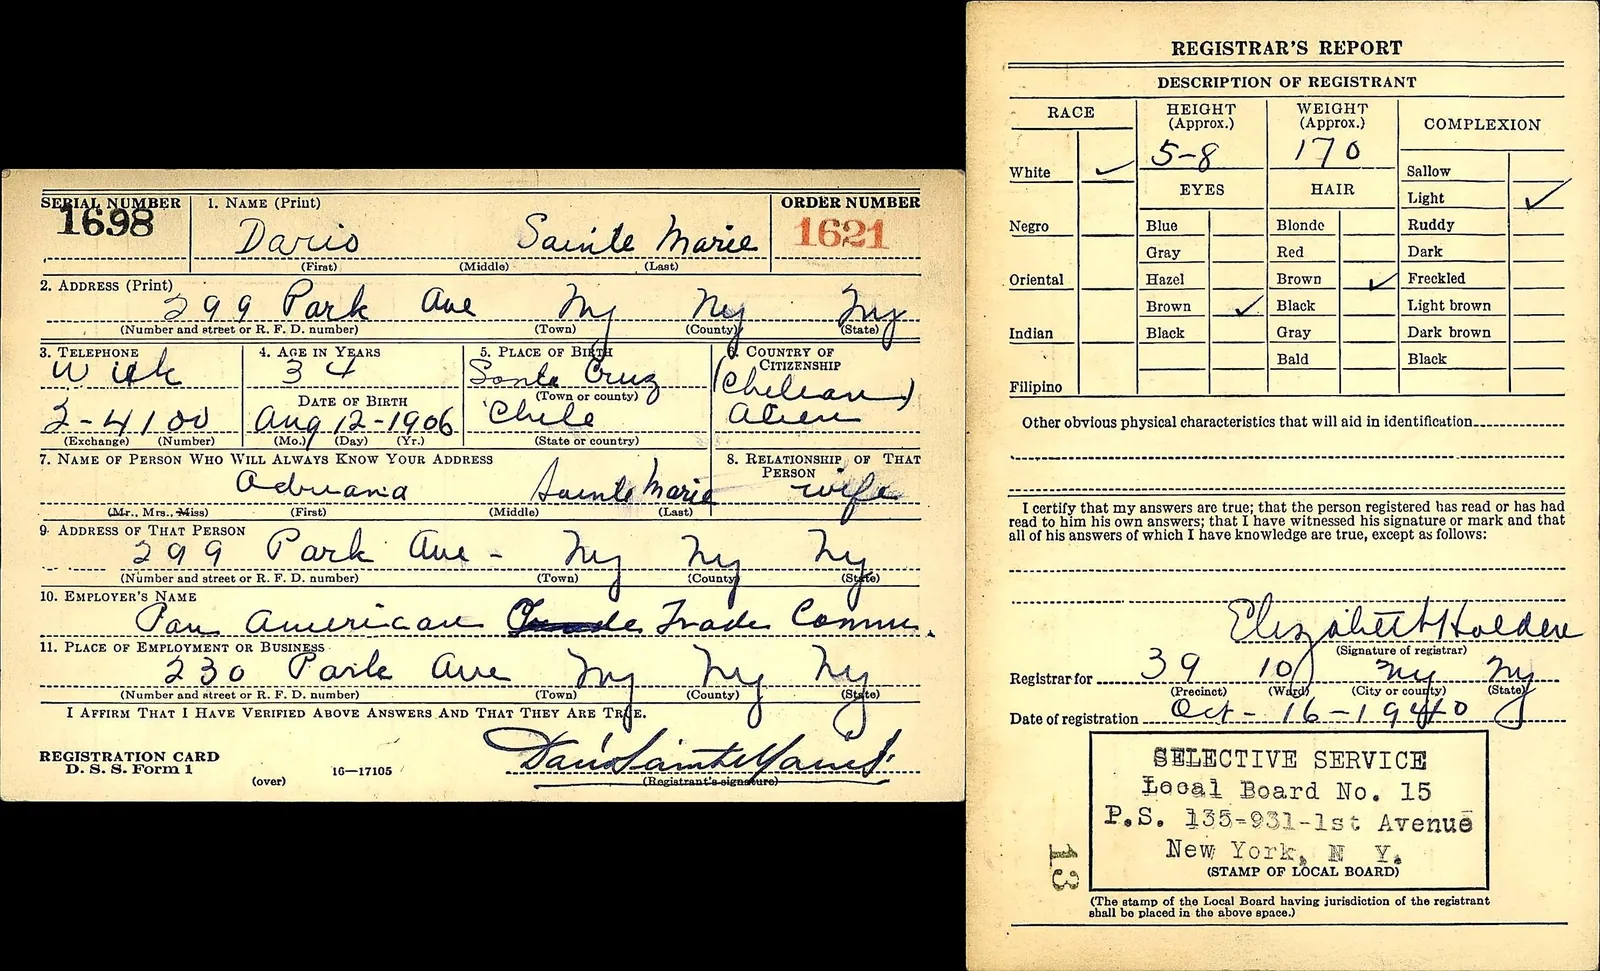 SERIAL NUMBER
1698
1. NAME (Print)
ORDER NUMBER
1621
Dario Sainte Marie
(First) (Middle) (Last)
2. ADDRESS (Print)
299 Park Ave Ny Ny Ny
(Number and street or R. F. D. number) (Town) (County) (State)
3. TELEPHONE
4. AGE IN YEARS
5. PLACE OF BIRTH
6. COUNTRY OF CITIZENSHIP
34
Cruz
(Town or county)
(Chilean)
DATE OF BIRTH
2-4100
Aug 12-1906
Chile
Alien
(Exchange) (Number)
(Mo.) (Day) (Yr.)
(State or country)
7. NAME OF PERSON WHO WILL ALWAYS KNOW YOUR ADDRESS
8. RELATIONSHIP OF THAT PERSON
Adriana Sainte Marie
wife
(Mr., Mrs., Miss) (First) (Middle) (Last)
9. ADDRESS OF THAT PERSON
299 Park Ave - Ny Ny Ny
(Number and street or R. F. D. number) (Town) (County) (State)
10. EMPLOYER'S NAME
Pan American Trade Comm.
11. PLACE OF EMPLOYMENT OR BUSINESS
230 Park Ave Ny Ny Ny
(Number and street or R. F. D. number) (Town) (County) (State)
I AFFIRM THAT I HAVE VERIFIED ABOVE ANSWERS AND THAT THEY ARE TRUE.
REGISTRATION CARD
D. S. S. Form 1
(over)
16—17105
Dario Sainte Marie
(Registrant's signature)
REGISTRAR'S REPORT
DESCRIPTION OF REGISTRANT
RACE
HEIGHT (Approx.)
WEIGHT (Approx.)
COMPLEXION
5-8
170
White
EYES
HAIR
Sallow
Light
Negro
Blue
Blonde
Ruddy
Gray
Red
Dark
Oriental
Hazel
Brown
Freckled
Brown
Black
Light brown
Indian
Black
Gray
Dark brown
Bald
Black
Filipino
Other obvious physical characteristics that will aid in identification
I certify that my answers are true; that the person registered has read or has had
read to him his own answers; that I have witnessed his signature or mark and that
all of his answers of which I have knowledge are true, except as follows:
Elizabeth Holden
(Signature of registrar)
Registrar for 39 10 Ny Ny
(Precinct) (Ward) (City or county) (State)
Date of registration Oct - 16 - 1940
SELECTIVE SERVICE
Local Board No. 15
P.S. 135-931-1st Avenue
New York, N Y.
(STAMP OF LOCAL BOARD)
13
(The stamp of the Local Board having jurisdiction of the registrant
shall be placed in the above space.)